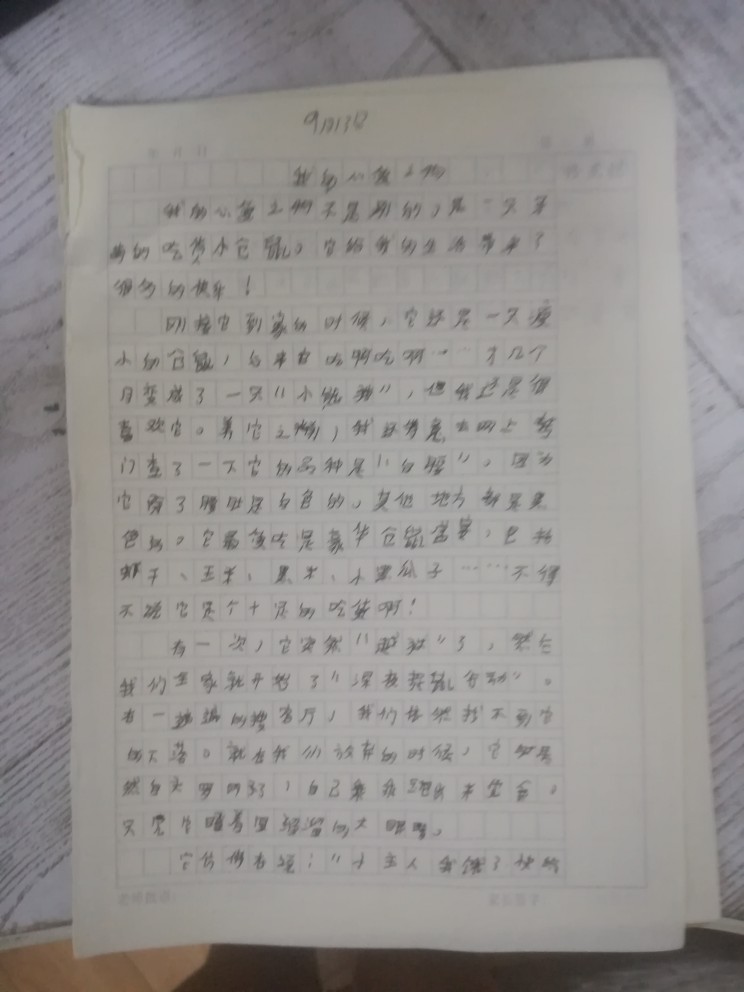 9月13日
我的心爱之物
我的心爱之物不是别的，是一只
的吃货小仓鼠，它给我的生活带来了
很多的快乐！
刚接它到家的时候，它还是一只瘦
小的仓鼠，后来它吃啊吃啊……才几个
月变成了一只"小肥猪"，但我还是很
喜欢它。养它之前，我还特意去网上专
门查了一下它的品种是"白腹"，因为
它除了腹肚是白色的，其他地方都是黑
色的。它最爱吃是豪华仓鼠套餐，包括
虾干、玉米、果木、小黑瓜子……不得
不说它是个十足的吃货啊！
有一次，它突然"越狱"了，然后
我们全家就开始了"深夜寻鼠行动"。
在一遍遍的搜客厅，我们依然找不到它
的下落。就在我们放弃的时候，它
然自己乖乖跑出来坐在
只见它睁着圆溜溜的大眼睛，
它仿佛在说："小主人我饿了快给